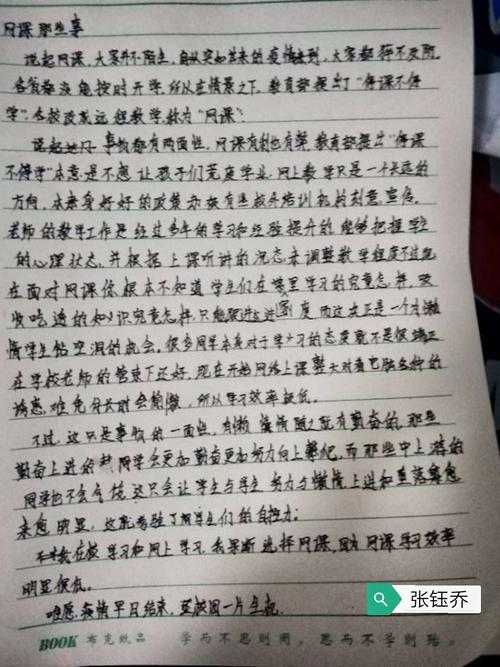 网课那些事
说起网课,大家并不陌生,自从突如其来的疫情来到,大家都猝不及防,
各省都没能按时开学,所以在情景之下,教育部提出了“停课不停
学”:各校改成远程教学,称为“网课”:
事物都有两面性,网课有利也有弊,教育部提出“停课
不停学”本意是不想让孩子们荒废学业,网上教学只是一个长远的
方向,本来身好好的政策 校外培训机构刻意宣传,
老师的教学工作是经过多年的学习和经验提升的,能够把握学生
的心理状态,并根据上课听讲的况态来调整教学程度不过现
在面对网课你根本不知道学生们在哪里学习的究竟怎样,吸
收吃透的知识究竟怎样,只能跟进进度 而这次正是一个为懒
惰学生钻空混的机会,很多同学本来对于学习的态度就不是很端正
在学校老师的管束下还好,现在开始网络上课整天对着电脑各种的
诱惑,难免分长时会 所以学习效率极低。
不过,这只是事物的一面性,有懒惰随之既有勤奋的,那些
勤奋上进的 同学会更加勤奋更加努力向上攀纪,而那些中上游的
同学也不会气馁,这只会让学生与学生努力与懒惰上进和堕落愈愈
来愈明显,这就考验了同学生们的自控力:
在校学习和网上学习,我果断选择网课,因为网课学习效率
明显很低。
唯愿疫情早日结束,至校园一片生机.
BOOK 布克纸品 学而不思则罔,思而不学则殆。
张钰乔